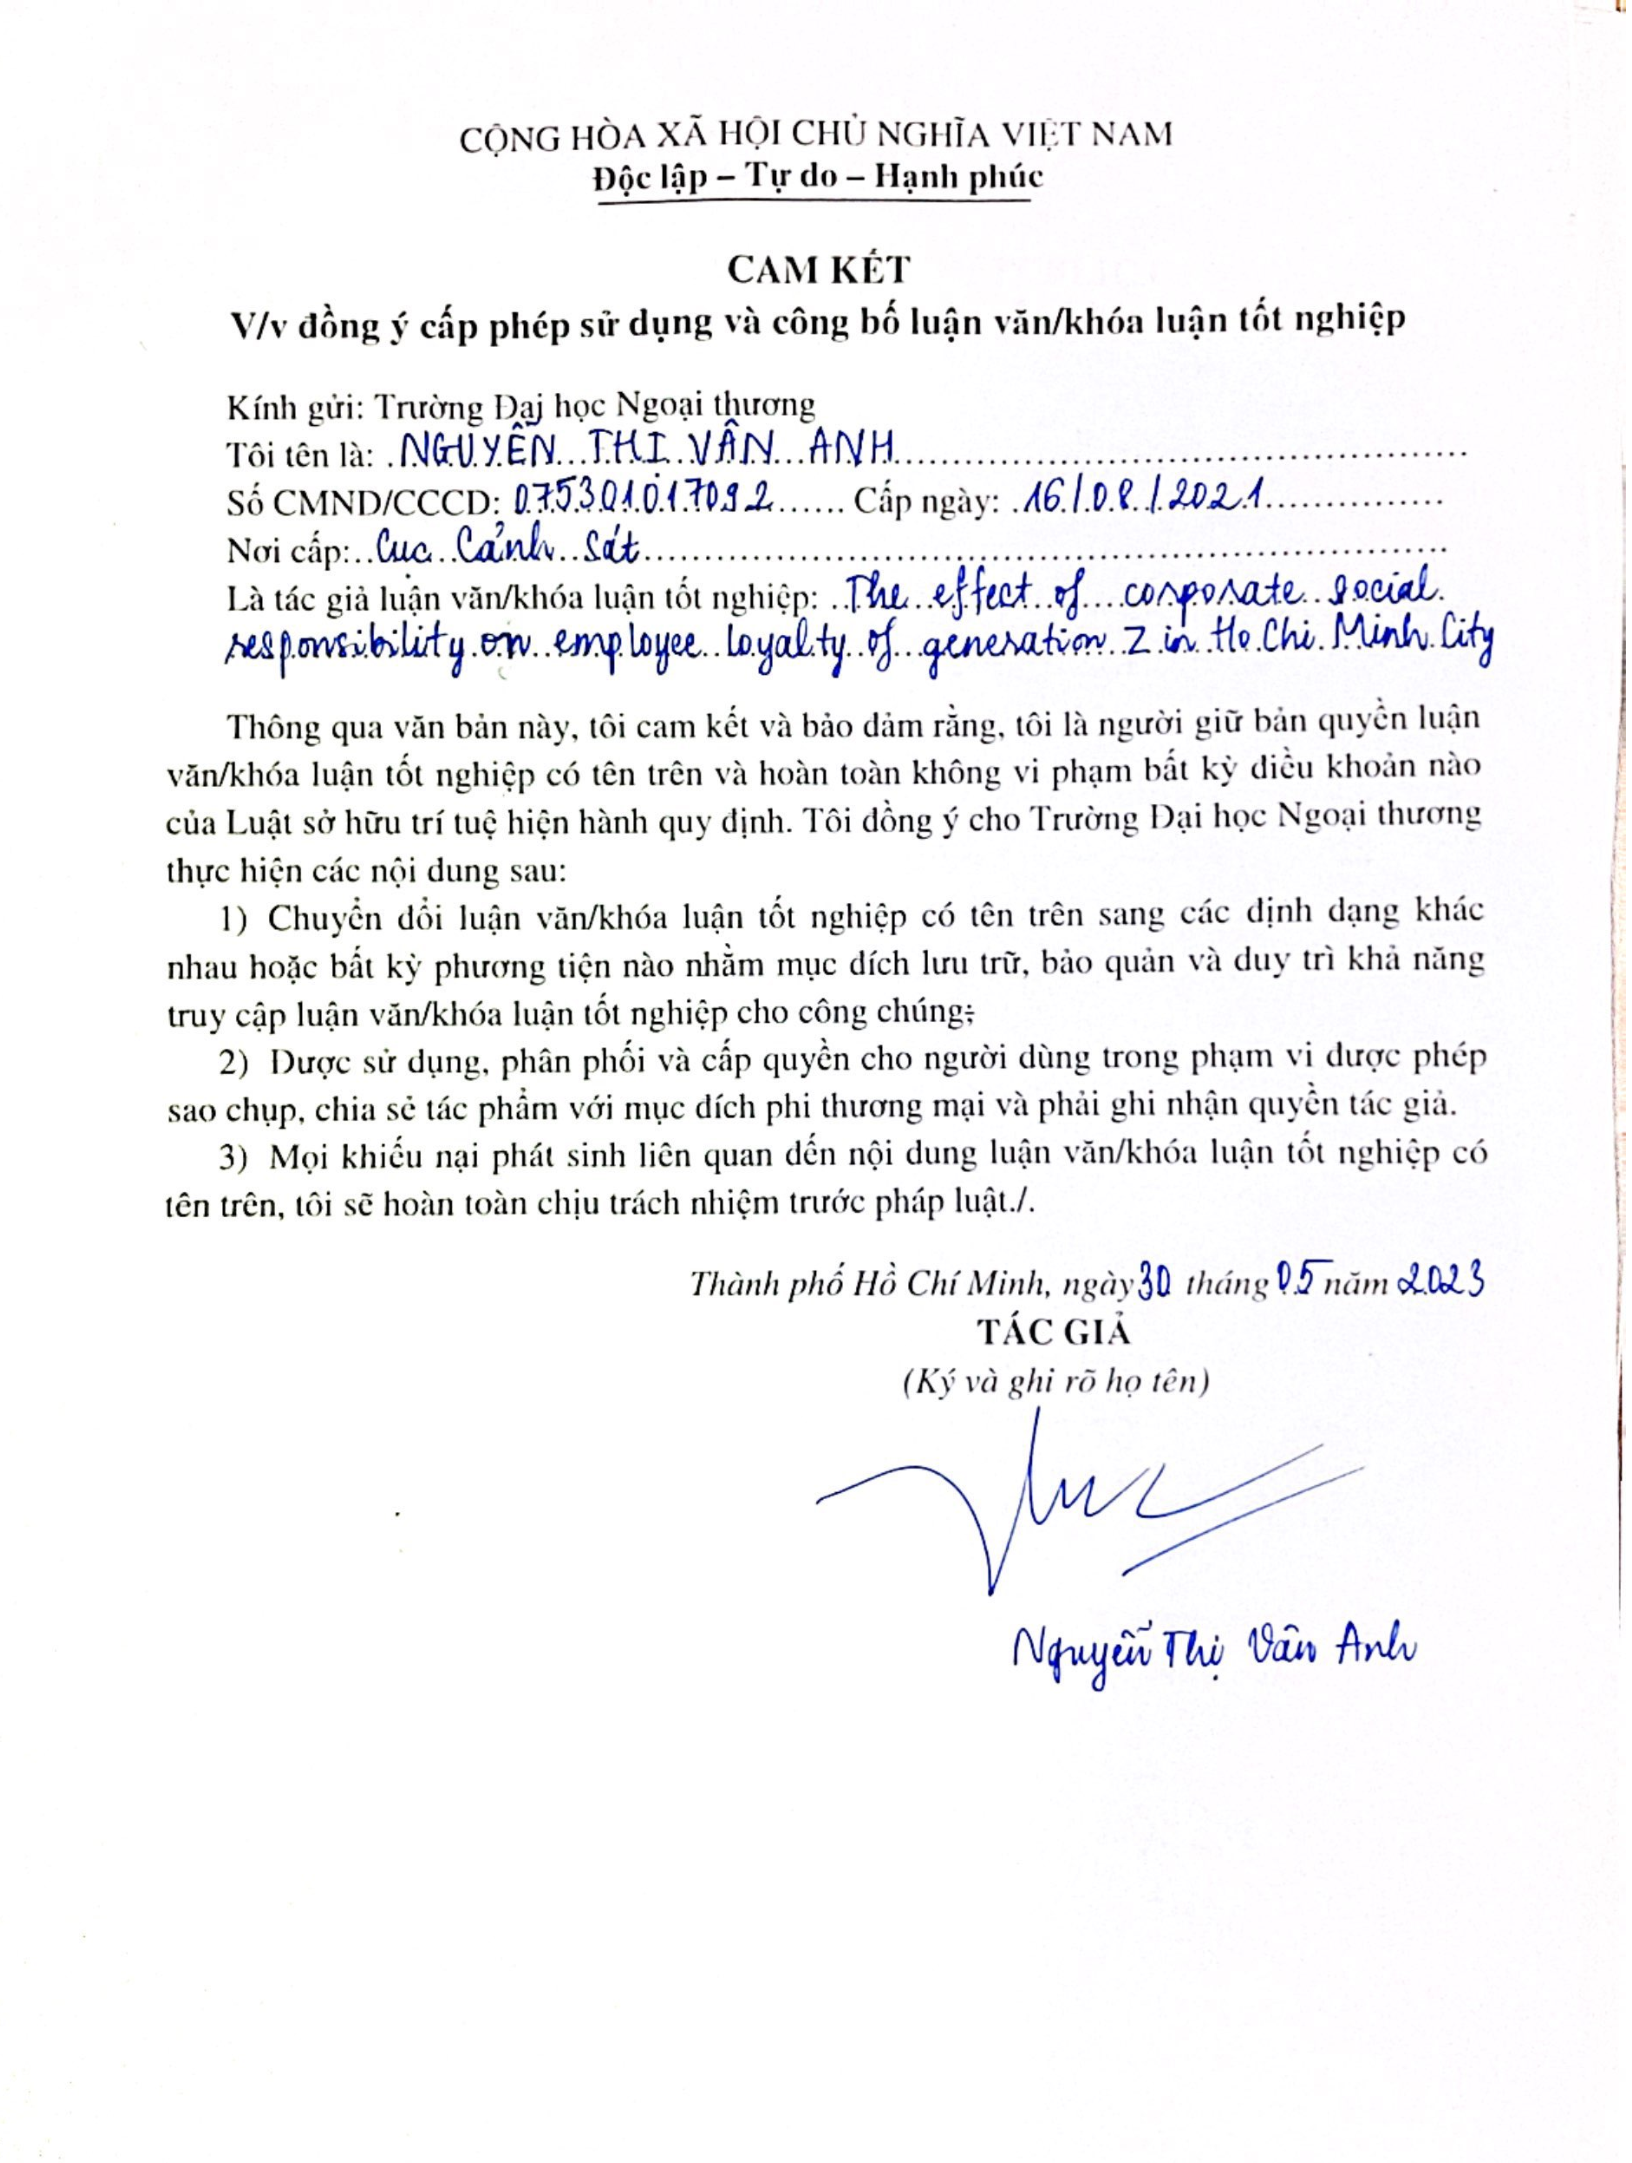 CỘNG HÒA XÃ HỘI CHỦ NGHĨA VIỆT NAM
Độc lập – Tự do – Hạnh phúc
CAM KẾT
V/v đồng ý cấp phép sử dụng và công bố luận văn/khóa luận tốt nghiệp
Kính gửi: Trường Đại học Ngoại thương
Tôi tên là: NGUYỄN THỊ VÂN ANH
Số CMND/CCCD: 075301017092 Cấp ngày: 16/08/2021
Nơi cấp: Cục Cảnh sát
Là tác giả luận văn/khóa luận tốt nghiệp: The effect of corporate social
responsibility on employee loyalty of generation Z in Ho Chi Minh City
Thông qua văn bản này, tôi cam kết và bảo đảm rằng, tôi là người giữ bản quyền luận
văn/khóa luận tốt nghiệp có tên trên và hoàn toàn không vi phạm bất kỳ điều khoản nào
của Luật sở hữu trí tuệ hiện hành quy định. Tôi đồng ý cho Trường Đại học Ngoại thương
thực hiện các nội dung sau:
1) Chuyển đổi luận văn/khóa luận tốt nghiệp có tên trên sang các định dạng khác
nhau hoặc bất kỳ phương tiện nào nhằm mục đích lưu trữ, bảo quản và duy trì khả năng
truy cập luận văn/khóa luận tốt nghiệp cho công chúng;
2) Được sử dụng, phân phối và cấp quyền cho người dùng trong phạm vi được phép
sao chụp, chia sẻ tác phẩm với mục đích phi thương mại và phải ghi nhận quyền tác giả.
3) Mọi khiếu nại phát sinh liên quan đến nội dung luận văn/khóa luận tốt nghiệp có
tên trên, tôi sẽ hoàn toàn chịu trách nhiệm trước pháp luật./.
Thành phố Hồ Chí Minh, ngày 30 tháng 05 năm 2023
TÁC GIẢ
(Ký và ghi rõ họ tên)
Nguyễn Thị Vân Anh